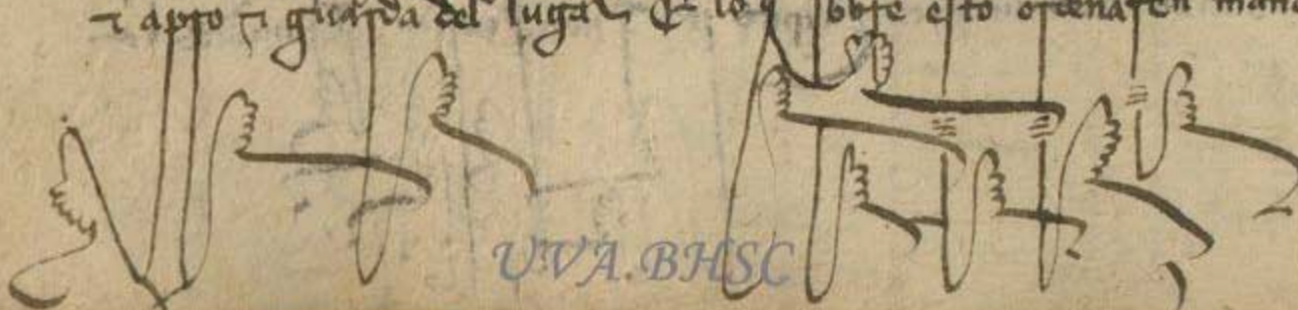 ⁊ apro ⁊ guarda del lugar ⁊ lo q̄ sobre esto ordenaren man
UVA.BHSC